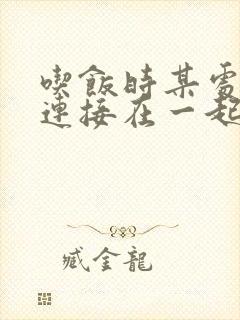 喫飯時某處
連接在一起
臧金龍